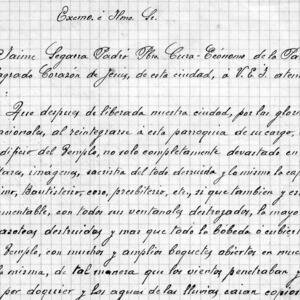 Excmo. é Ilmo. Sr.
Jaime Segarra Padró Pbro. Cura-Ecónomo de la Pa
agrado Corazón de Jesús, de esta ciudad, á V.E.I. aten
:
Que despues de liberada nuestra ciudad, por las glor
acionales, al reintegrarse á esta parroquia de su cargo,
dificio del Templo, no solo completamente devastado en
tara, imagenes, sacristia del todo derruida y lo mismo la cap
imo, Bautisterio, coro, presbiterio, etc., si que tambien y es
mentable, con todos sus ventanales destrozados, la mayo
azoteas destruidas y mas que todo la bóbeda ó cubiert
Templo, con muchos y amplios boquetes abiertos en much
la misma, de tal manera que los vientos penetraban y
por doquier y las aguas de las lluvias caian copios